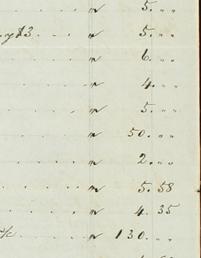 " 5. " "
. . g $3. . . . " 5. " "
. . . . " 6. " "
. . . . " 4. " "
. . . . " 5. " "
. . . . " 50. " "
. . . . " 2. " "
. . . . " 5. 58
. . . . " 4. 35
. . . . " 130. " "